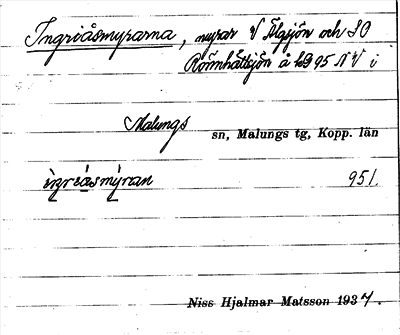 Ingriåsmyrarna, myrar V Älgsjön och SO
Rörmhåttsjön å kb 95 NV i
Malungs sn, Malungs tg, Kopp. län
951.
Niss Hjalmar Matsson 1937.